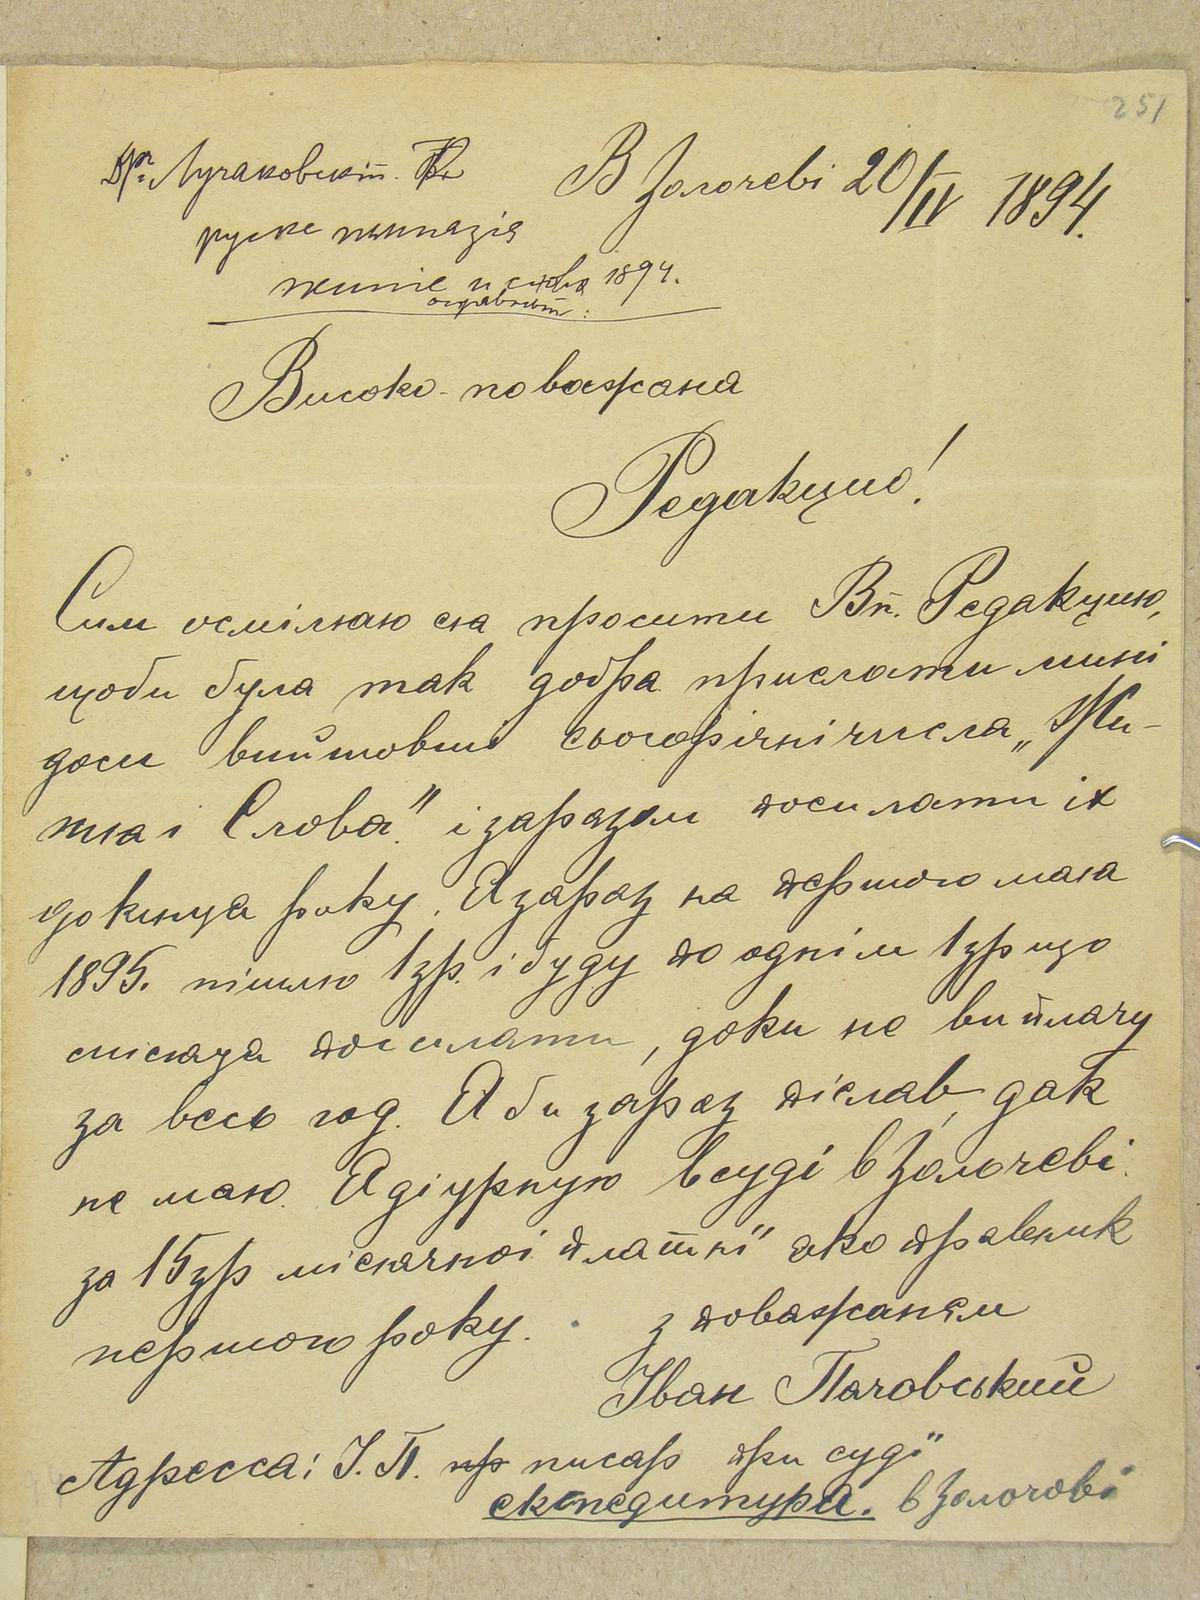 251
Др. Лучаковскій.
В Золочеві 20/IV 1894.
руска гімназія
житє и слова 1894.
Високо-поважана
Редакциє!
Сим осмілюю ся просити Вп. Редакцию,
щоби була так добра прислати мині
доси вийшовші сьогорічні числа „Жи-
тя і Слова" і заразом посилати іх
до кінця року. Я зараз на першого мая
1895. пішлю 1 зр. і буду по однім 1 зр що
місяця посилати, доки не виплачу
за весь год. Я би зараз післав, дак
не маю. Я діурную в суді в Золочеві
за 15 зр місячної платні яко правник
першого року. з поважанєм
Іван Пачовський
Адресса: І. П. писар при суді
експедитура. в Золочові